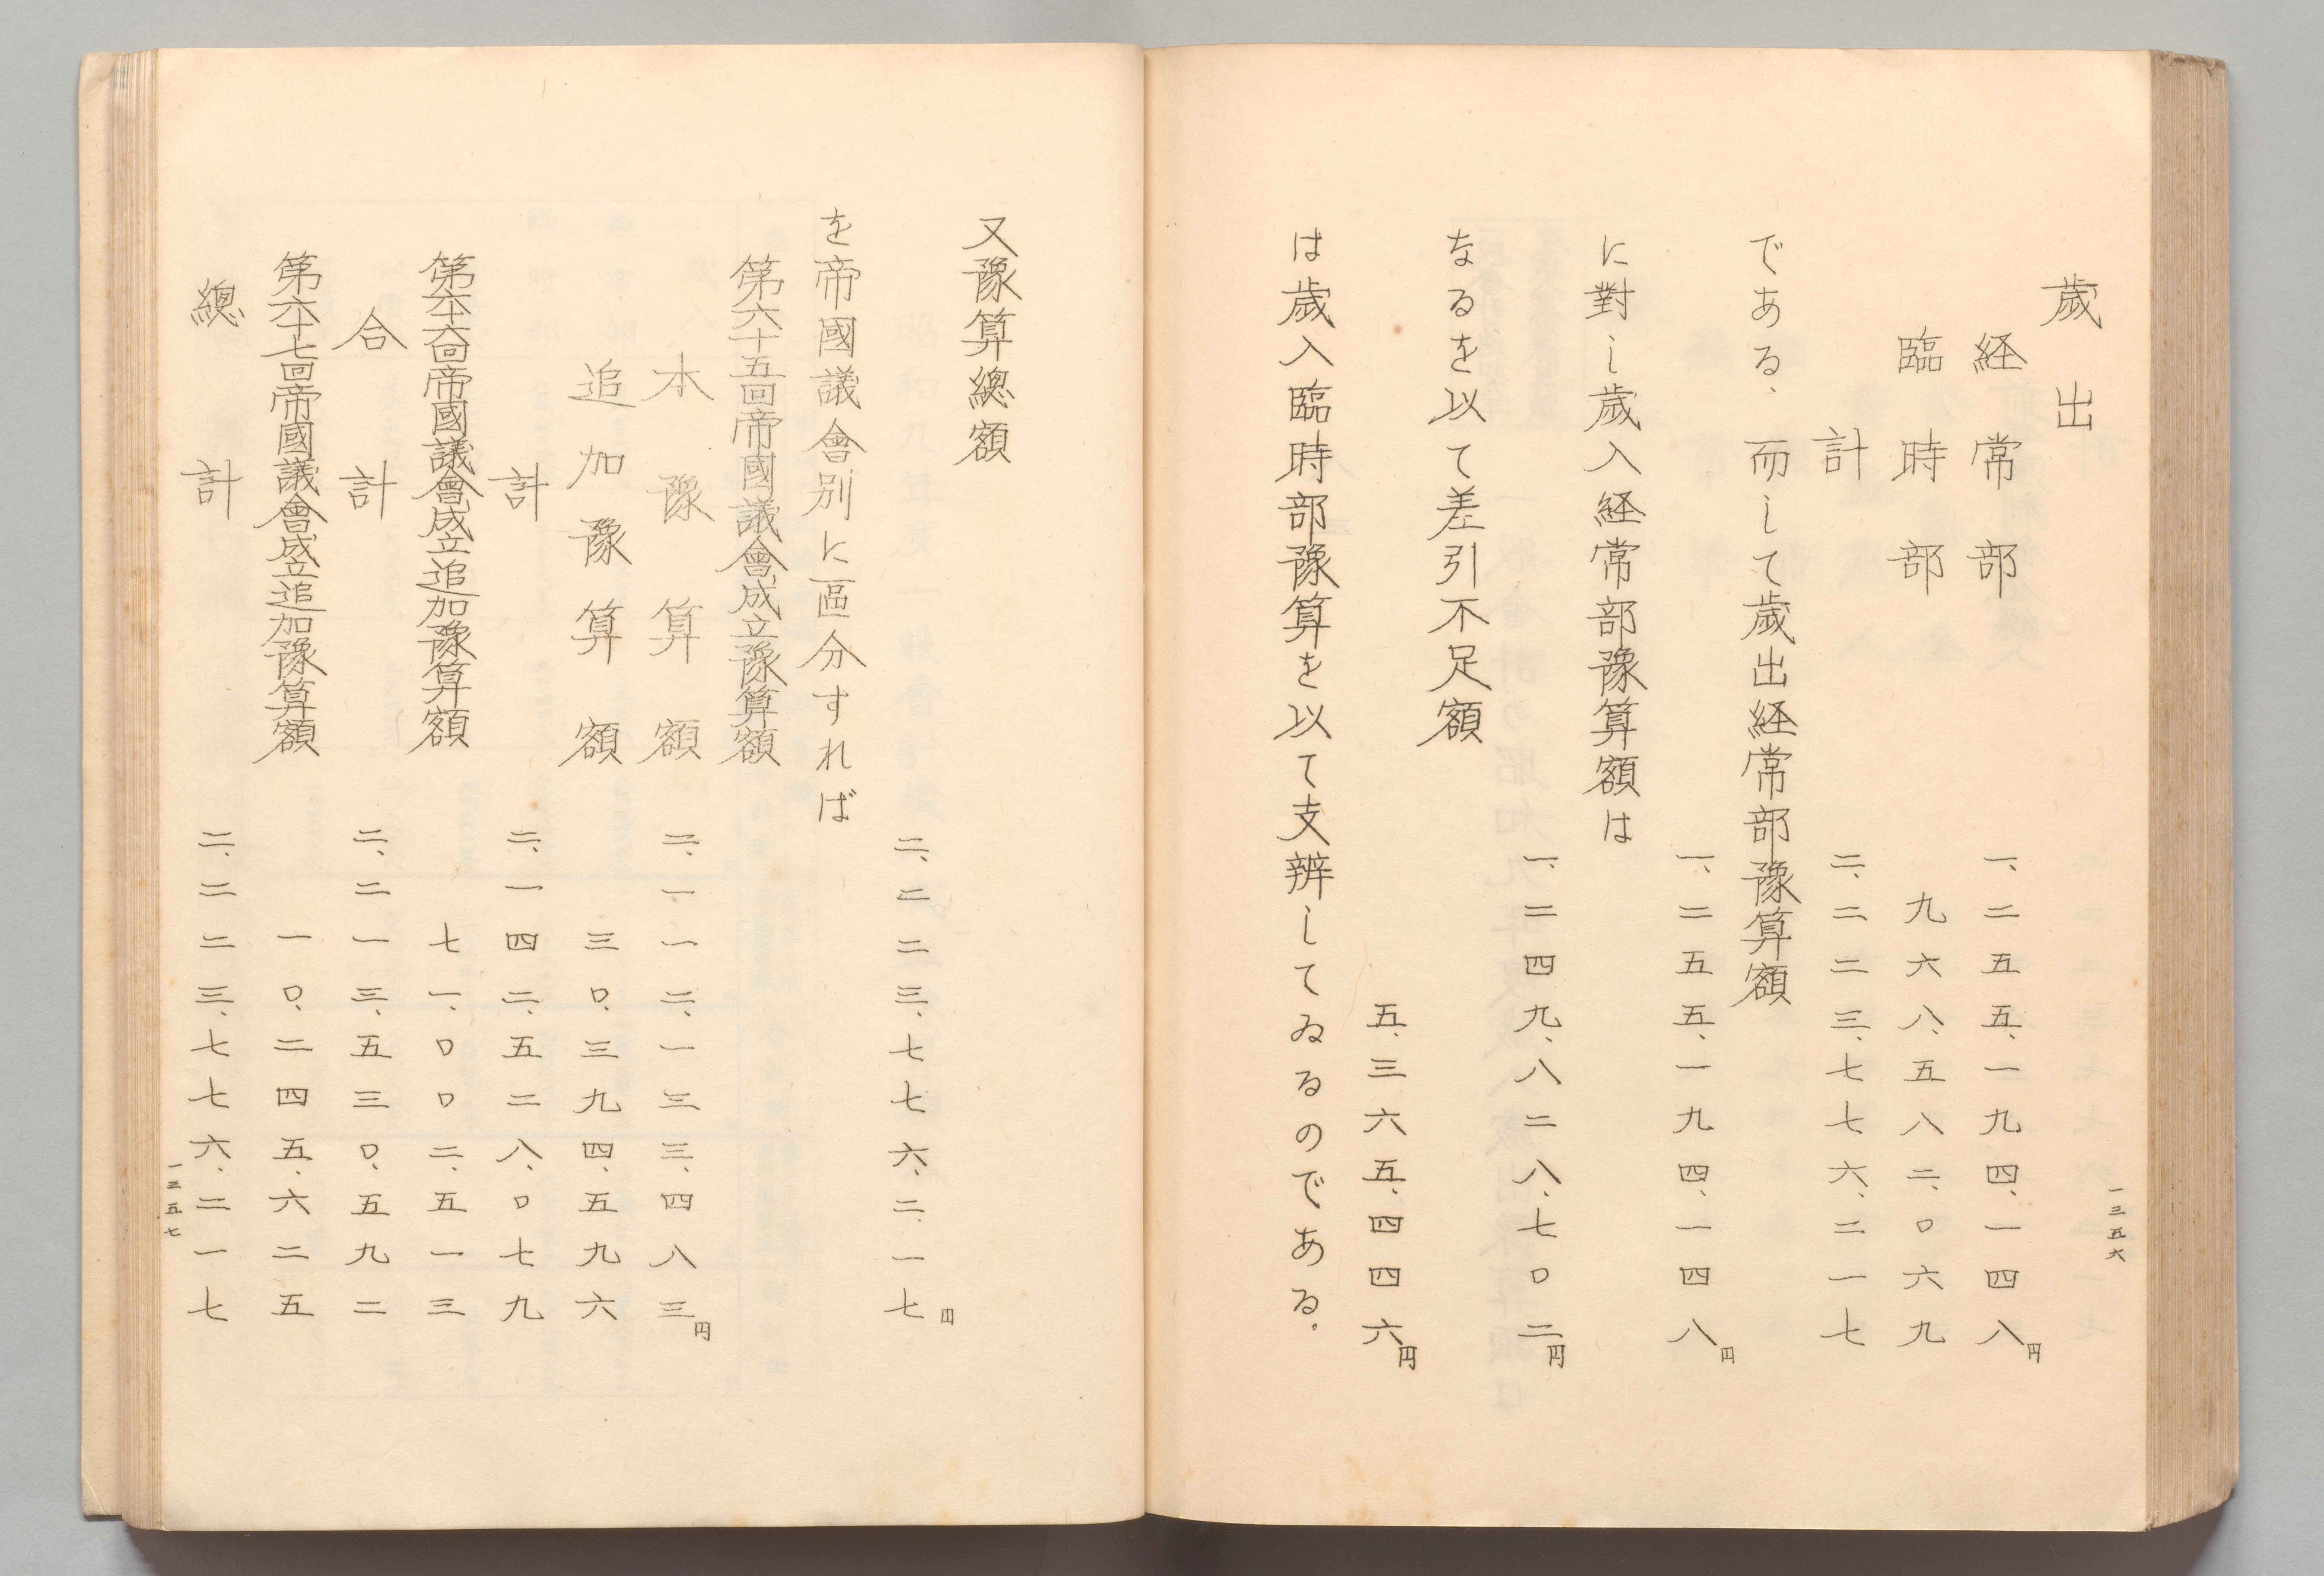 一三五六
歳出
経常部 一、二五五、一九四、一四八円
臨時部 九六八、五八二、〇六九
計 二、二二三、七七六、二一七
である、而して歳出経常部豫算額
一、二五五、一九四、一四八円
に對し歳入経常部豫算額は
一、二四九、八二八、七〇二円
なるを以て差引不足額
五、三六五、四四六円
は歳入臨時部豫算を以て支辨してゐるのである。
又豫算總額
二、二二三、七七六、二一七円
を帝國議會別に區分すれば
第六十五回帝國議會成立豫算額
本豫算額 二、一一二、一三三、四八三円
追加豫算額 三〇、三九四、五九六
計 二、一四二、五二八、〇七九
第六十六回帝國議會成立追加豫算額 七一、〇〇二、五一三
合計 二、二一三、五三〇、五九二
第六十七回帝國議會成立追加豫算額 一〇、二四五、六二五
總計 二、二二三、七七六、二一七
一三五七